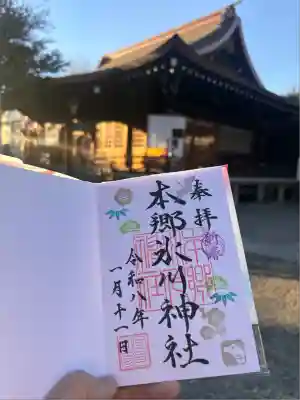 奉拝
本郷氷川神社
令和八年
一月十一日